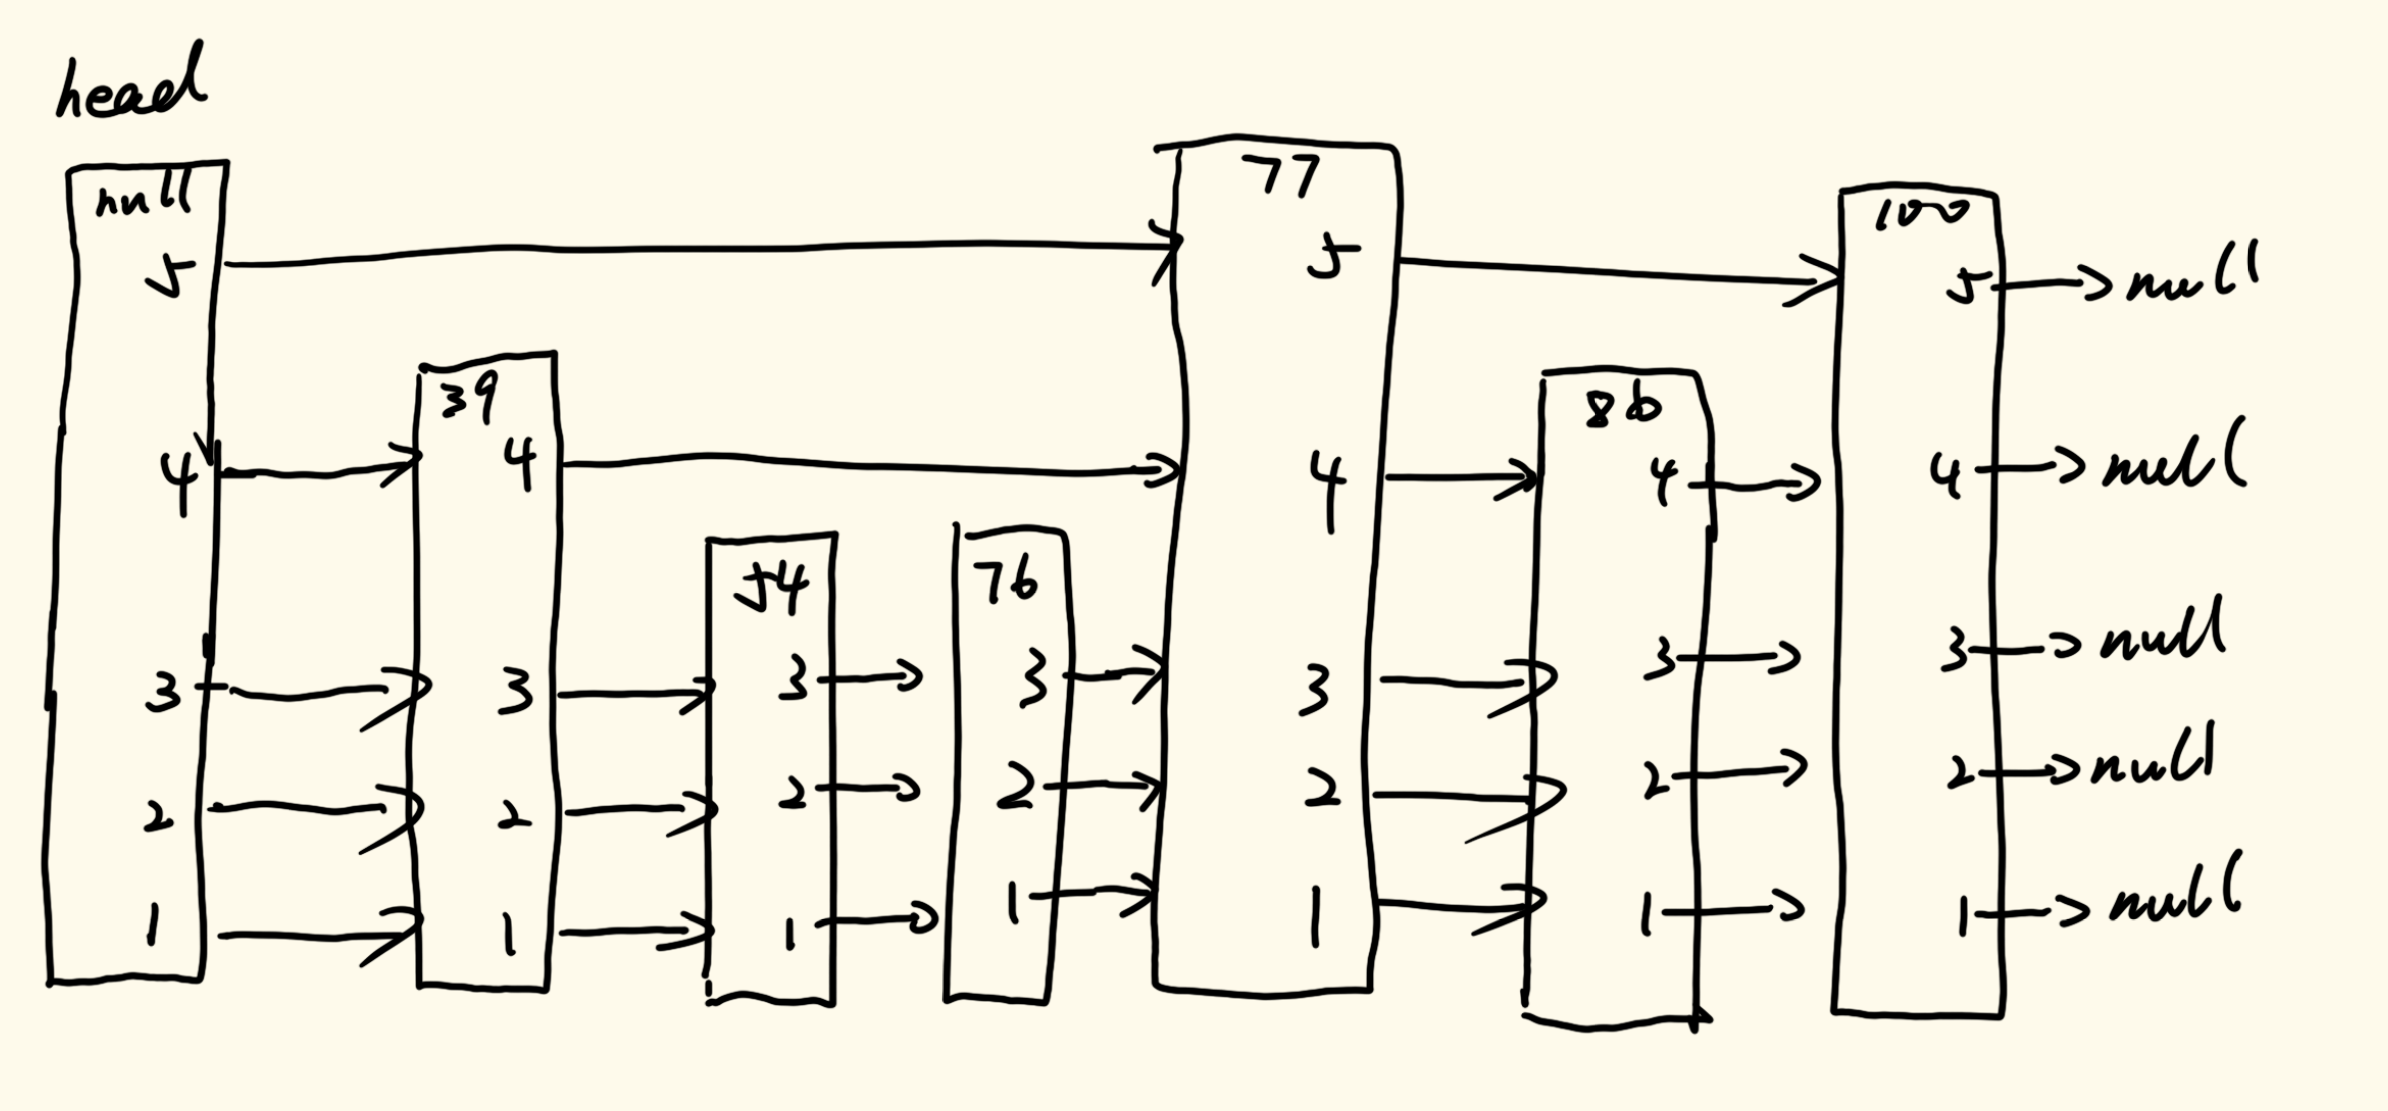 head
null
5
4
3
2
1
39
4
3
2
1
54
3
2
1
76
3
2
1
77
5
4
3
2
1
86
4
3
2
1
100
5 null
4 null
3 null
2 null
1 null